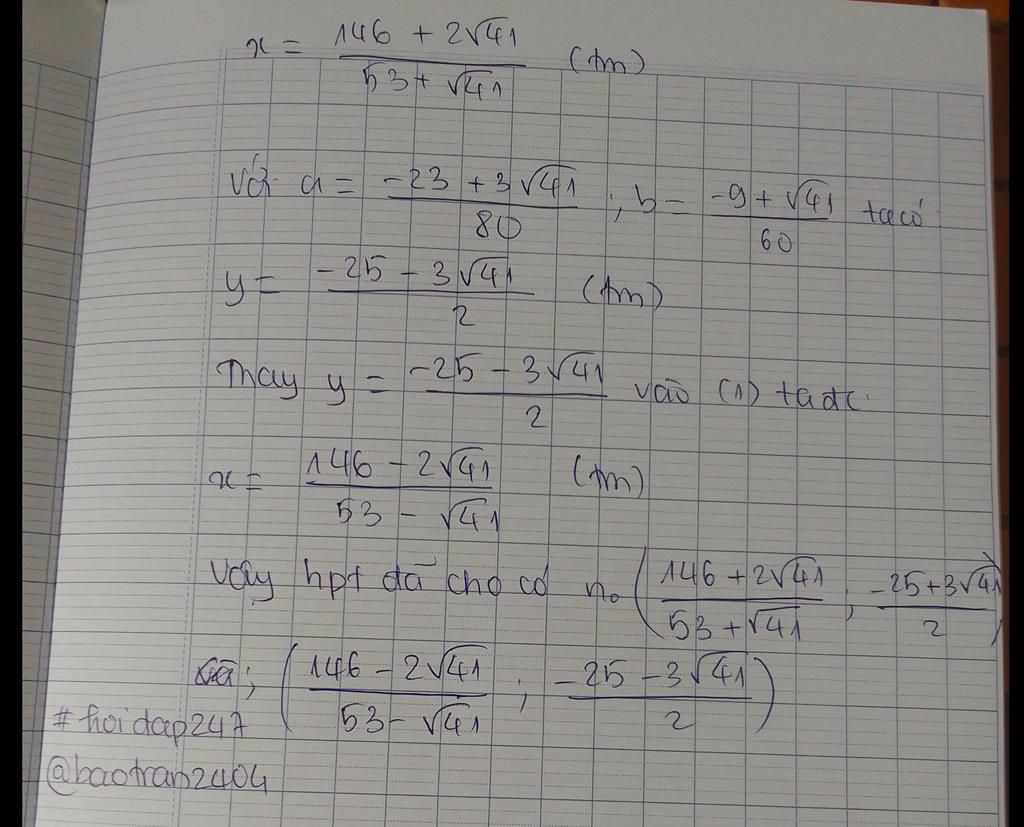 x = (146 + 2√41)/(53 + √41) (tm)
Với a = (-23 + 3√41)/80 ; b = (-9 + √41)/60 ta có
y = (-25 - 3√41)/2 (tm)
Thay y = (-25 - 3√41)/2 vào (1) ta đc
x = (146 - 2√41)/(53 - √41) (tm)
Vậy hpt đã cho có n₀ ((146 + 2√41)/(53 + √41) ; (-25 + 3√41)/2)
; ((146 - 2√41)/(53 - √41) ; (-25 - 3√41)/2)
#hoidap247
@baotran2404